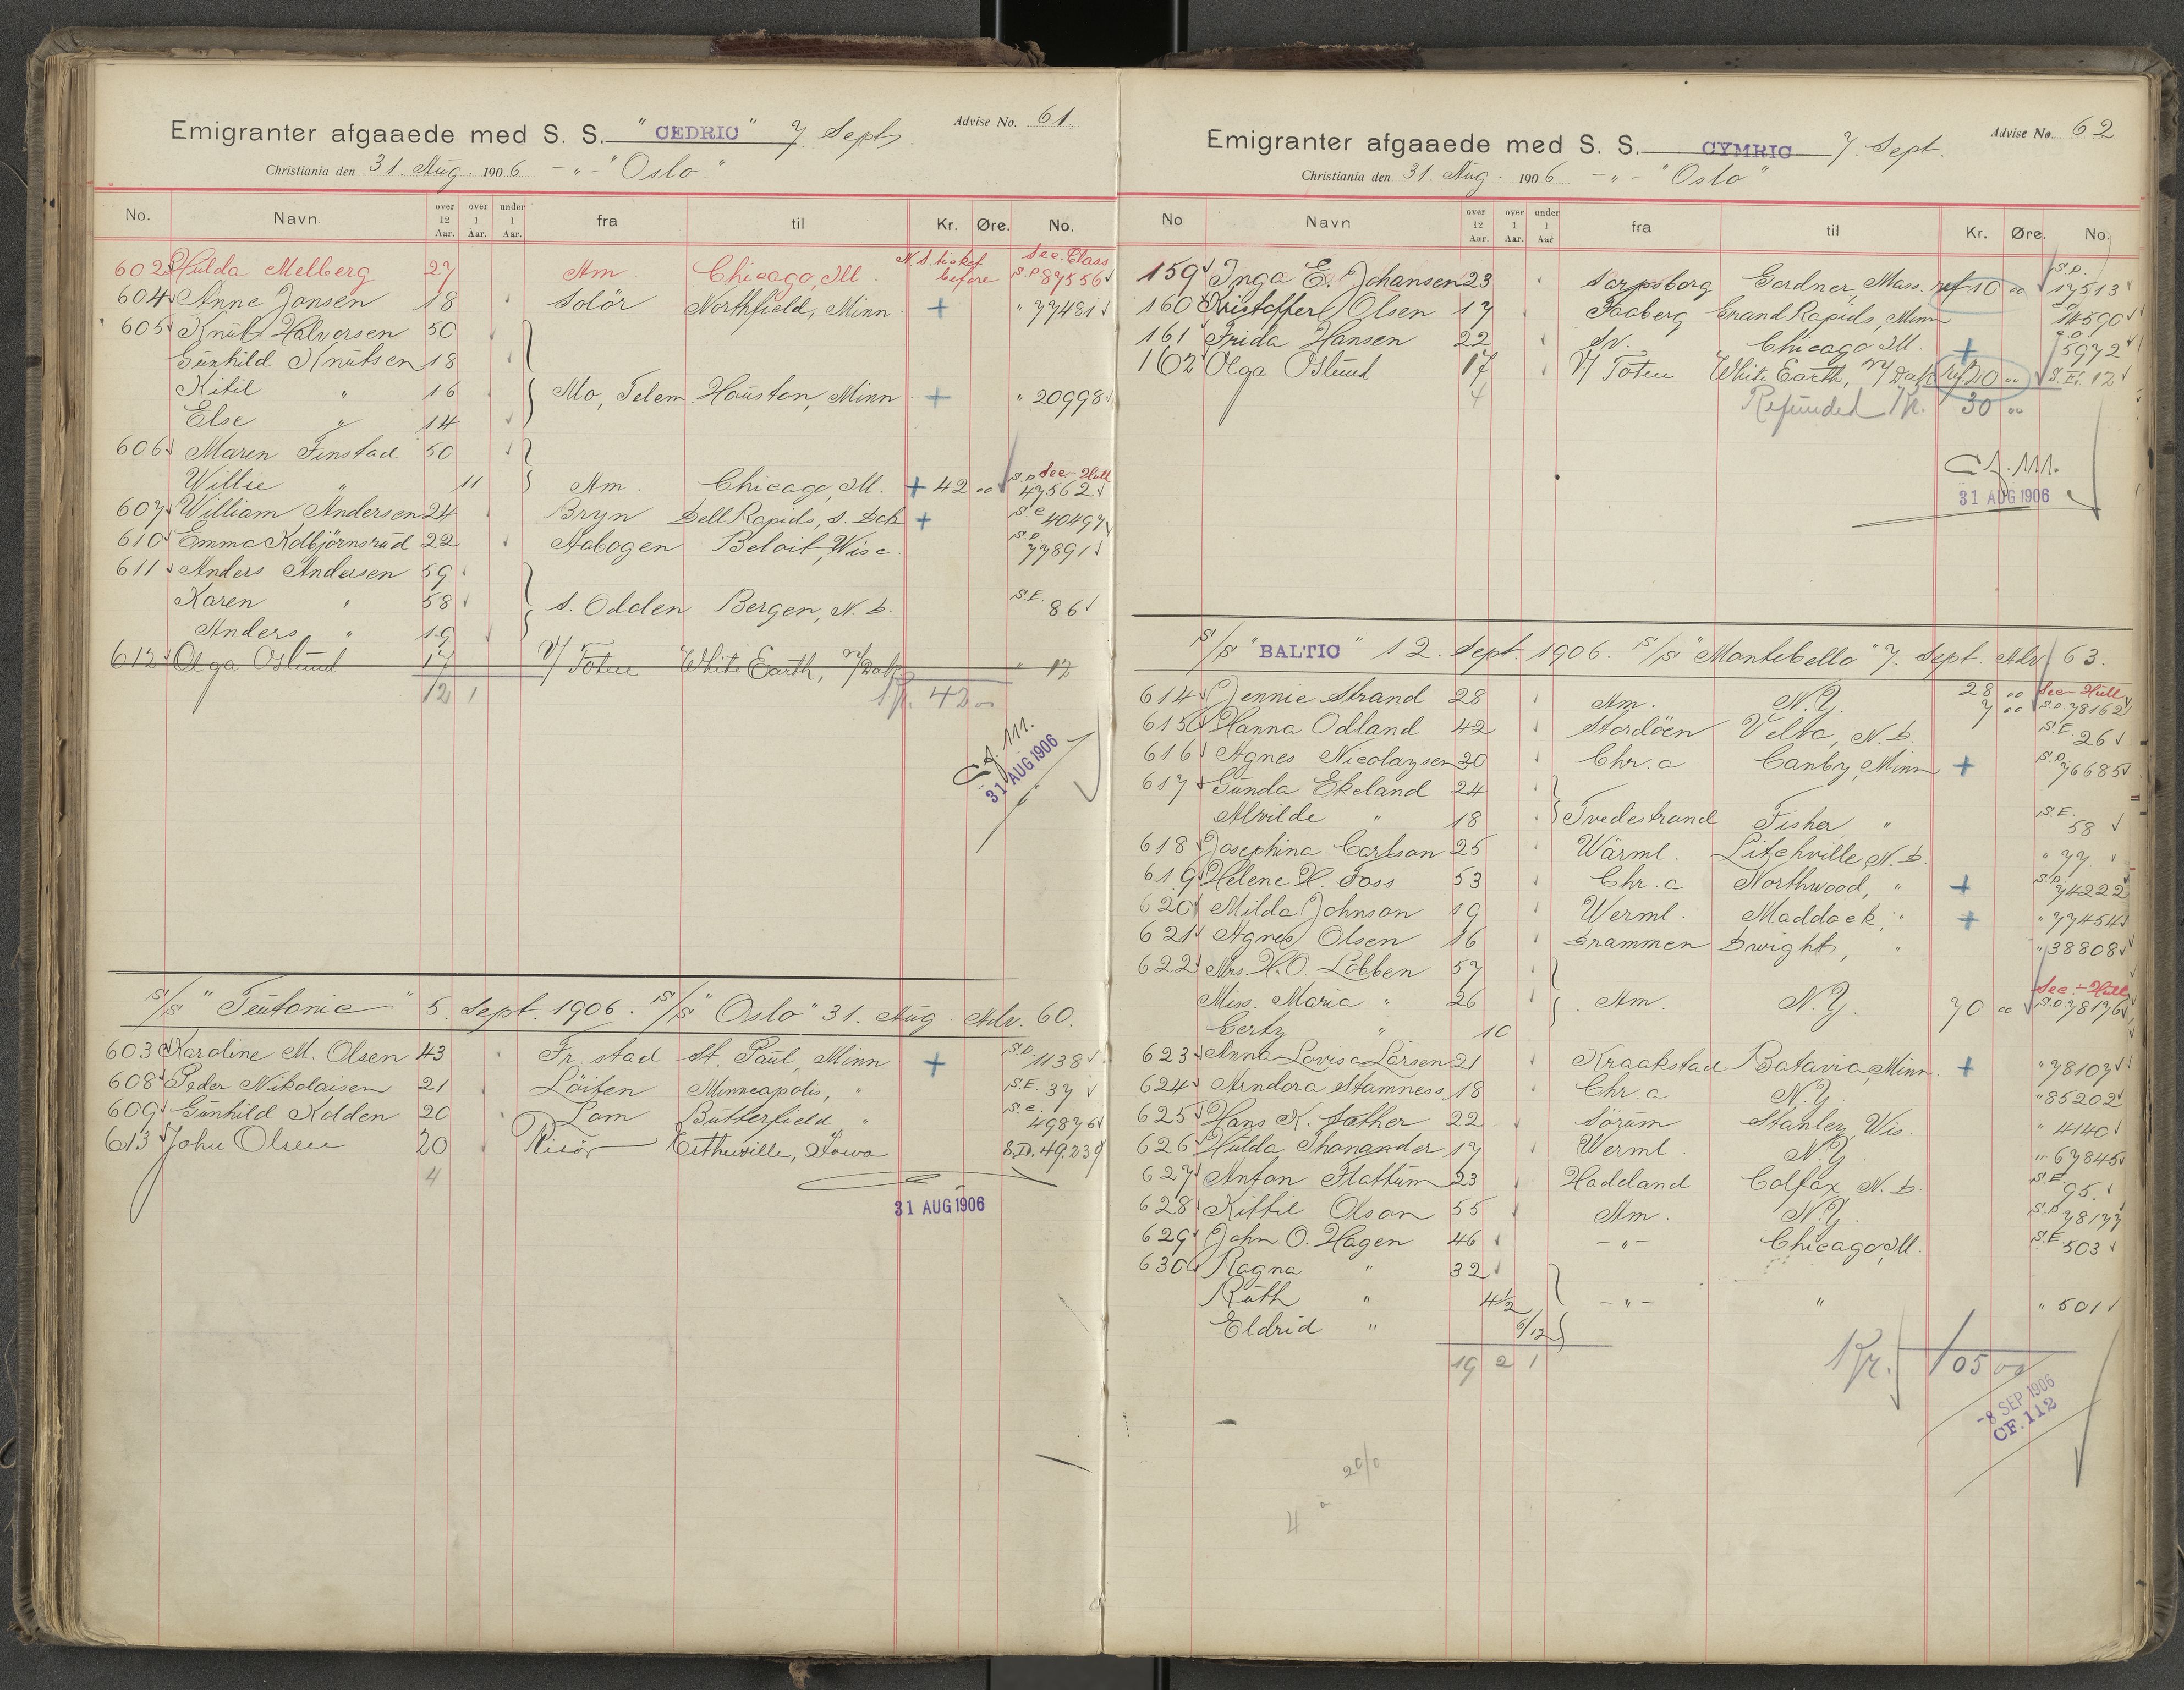 Advise No. 61.
Emigranter afgaaede med S. S. "CEDRIC" 7 Sept.
Christiania den 31. Aug. 1906 -"- "Oslo"
No. Navn. over 12 Aar. over 1 Aar. under 1 Aar. fra til Kr. Øre. No.
602 Hulda Melberg 27 Am. Chicago, Ill N.S. ticket before See. Class S.D. 87556
604 Anne Jansen 18 Solör Northfield, Minn. + " 77481
605 Knut Halvorsen 50
Gunhild Knutsen 18
Kitil " 16 Mo, Telem. Houston, Minn + " 20998
Else " 14
606 Maren Finstad 50
Willie " 11 Am. Chicago, Ill. + 42 00 See - Hull S.D. 47562
607 William Andersen 24 Bryn Dell Rapids, S. Dak + S.C. 40497
610 Emma Kolbjörnsrud 22 Aabogen Beloit, Wisc. S.D. 77891
611 Anders Andersen 59
Karen " 58 S. Odden Bergen, N.D. S.E. 86
Anders " 19
612 Olga Östlund 17 V/ Toten White Earth, N/Dak " 12
12 1 Kr. 42 00
C.F. 111.
31 AUG 1906
S/S "Teutonic" 5. Sept. 1906. S/S "Oslo" 31. Aug. Adv. 60.
603 Karoline M. Olsen 43 Fr.stad St. Paul, Minn + S.D. 1138
608 Peder Nikolaisen 21 Löiten Minneapolis, " S.E. 37
609 Gunhild Kolden 20 Lom Butterfield " S.C. 49876
613 John Olsen 20 Risör Estherville, Iowa S.D. 49.239
4
31 AUG 1906
Advise No. 62
Emigranter afgaaede med S. S. CYMRIC 7. Sept.
Christiania den 31. Aug. 1906 -"- "Oslo"
No Navn over 12 Aar. over 1 Aar. under 1 Aar fra til Kr. Øre. No.
159 Inga E. Johansen 23 Sarpsborg Gardner, Mass. ref 10 00 S.D. 17513
160 Kristoffer Olsen 17 Faaberg Grand Rapids, Minn 14590
161 Frida Hansen 22 Dr. Chicago Ill. + 5972
162 Olga Östlund 17 V/ Toten White Earth, N/Dak ref 20 00 S.E. 12
4 Refunded Kr. 30 00
C.F. 111.
31 AUG 1906
S/S "BALTIC" 12. Sept. 1906. S/S "Montebello" 7. Sept. Adv. 63.
614 Jennie Strand 28 Am. N.Y. 28 00 See - Hull S.D. 78162
615 Hanna Odland 42 Stordöen Velva, N.D. 7 00 S.E. 26
616 Agnes Nicolaysen 20 Chr.a Canby, Minn + S.D. 76685
617 Gunda Ekeland 24
Alvilde " 18 Tvedestrand Fisher " S.E. 58
618 Josephina Carlson 25 Wärml. Litchville, N.D. " 77
619 Helene H. Foss 53 Chr.a Northwood, " + S.D. 74222
620 Milda Johnson 19 Werml. Maddock, " + " 77454
621 Agnes Olsen 16 Drammen Dwight, " " 38808
622 Mrs. H.O. Lobben 57
Miss. Maria " 26 Am. N.Y. 70 00 See - Hull S.D. 78176
Gerty " 10
623 Anna Lovisa Larsen 21 Kraakstad Batavia, Minn. + " 78107
624 Arndora Stamness 18 Chr.a N.Y. " 85202
625 Hans K. Sæther 22 Sörum Stanley, Wis. " 4140
626 Hulda Thonander 17 Werml. N.Y. " 67845
627 Anton Flattum 23 Hadeland Colfax, N.D. S.E. 95.
628 Kittil Olson 55 Am. N.Y. S.D. 78177
629 John O. Hagen 46 -"- Chicago, Ill. S.E. 503
630 Ragna " 32
Ruth " 4½ -"- " " 501
Eldrid " 6/12
19 2 1 Kr. 105 00
-8 SEP. 1906
CF. 112
20/0
4